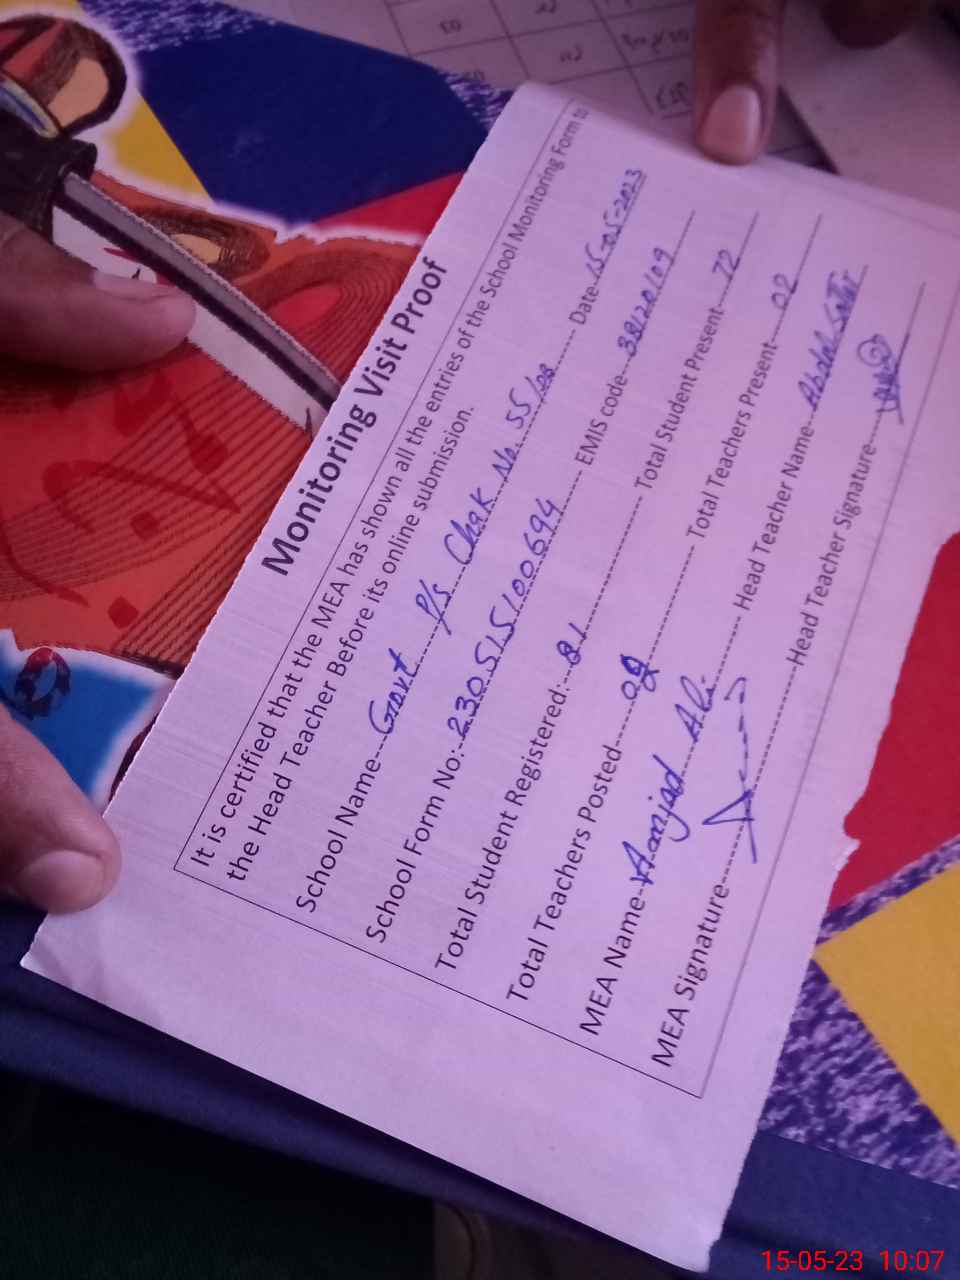 Monitoring Visit Proof
It is certified that the MEA has shown all the entries of the School Monitoring Form to
the Head Teacher Before its online submission.
School Name Govt P/s Chak No. 55/08 Date 15-05-2023
School Form No: 230515100694 EMIS code 38120109
Total Student Registered: 81 Total Student Present 72
Total Teachers Posted 02 Total Teachers Present 02
MEA Name Amjad Ali Head Teacher Name Abdul Sattar
MEA Signature Head Teacher Signature
15-05-23 10:07